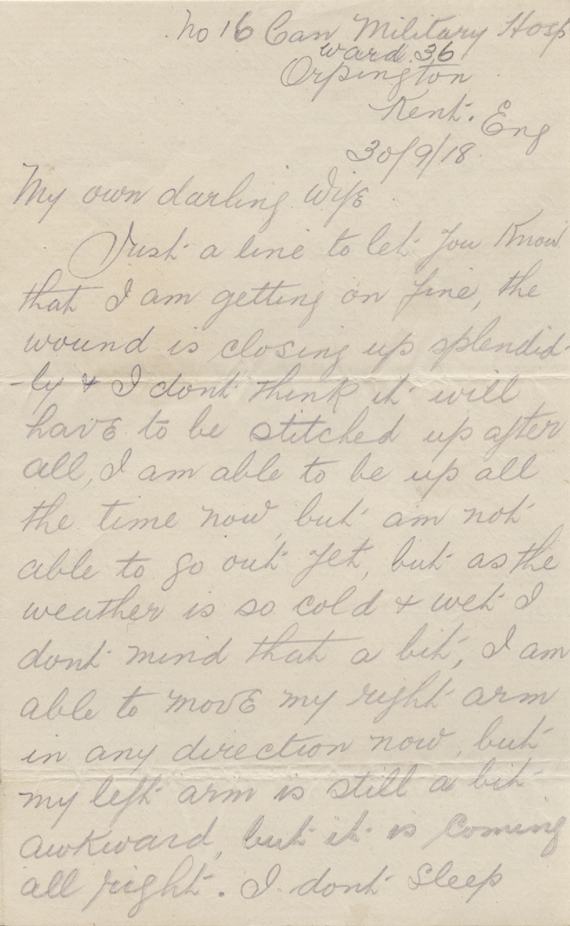 No 16 Can Military Hosp
Ward. 36
Orpington
Kent. Eng
30/9/18
My own darling Wife
Just a line to let you Know
that I am getting on fine, the
wound is closing up splendid-
-ly & I dont think it will
have to be stitched up after
all, I am able to be up all
the time now, but am not
able to go out yet, but as the
weather is so cold & wet I
dont mind that a bit, I am
able to move my right arm
in any direction now, but
my left arm is still a bit
awkward, but it is coming
all right. I dont sleep